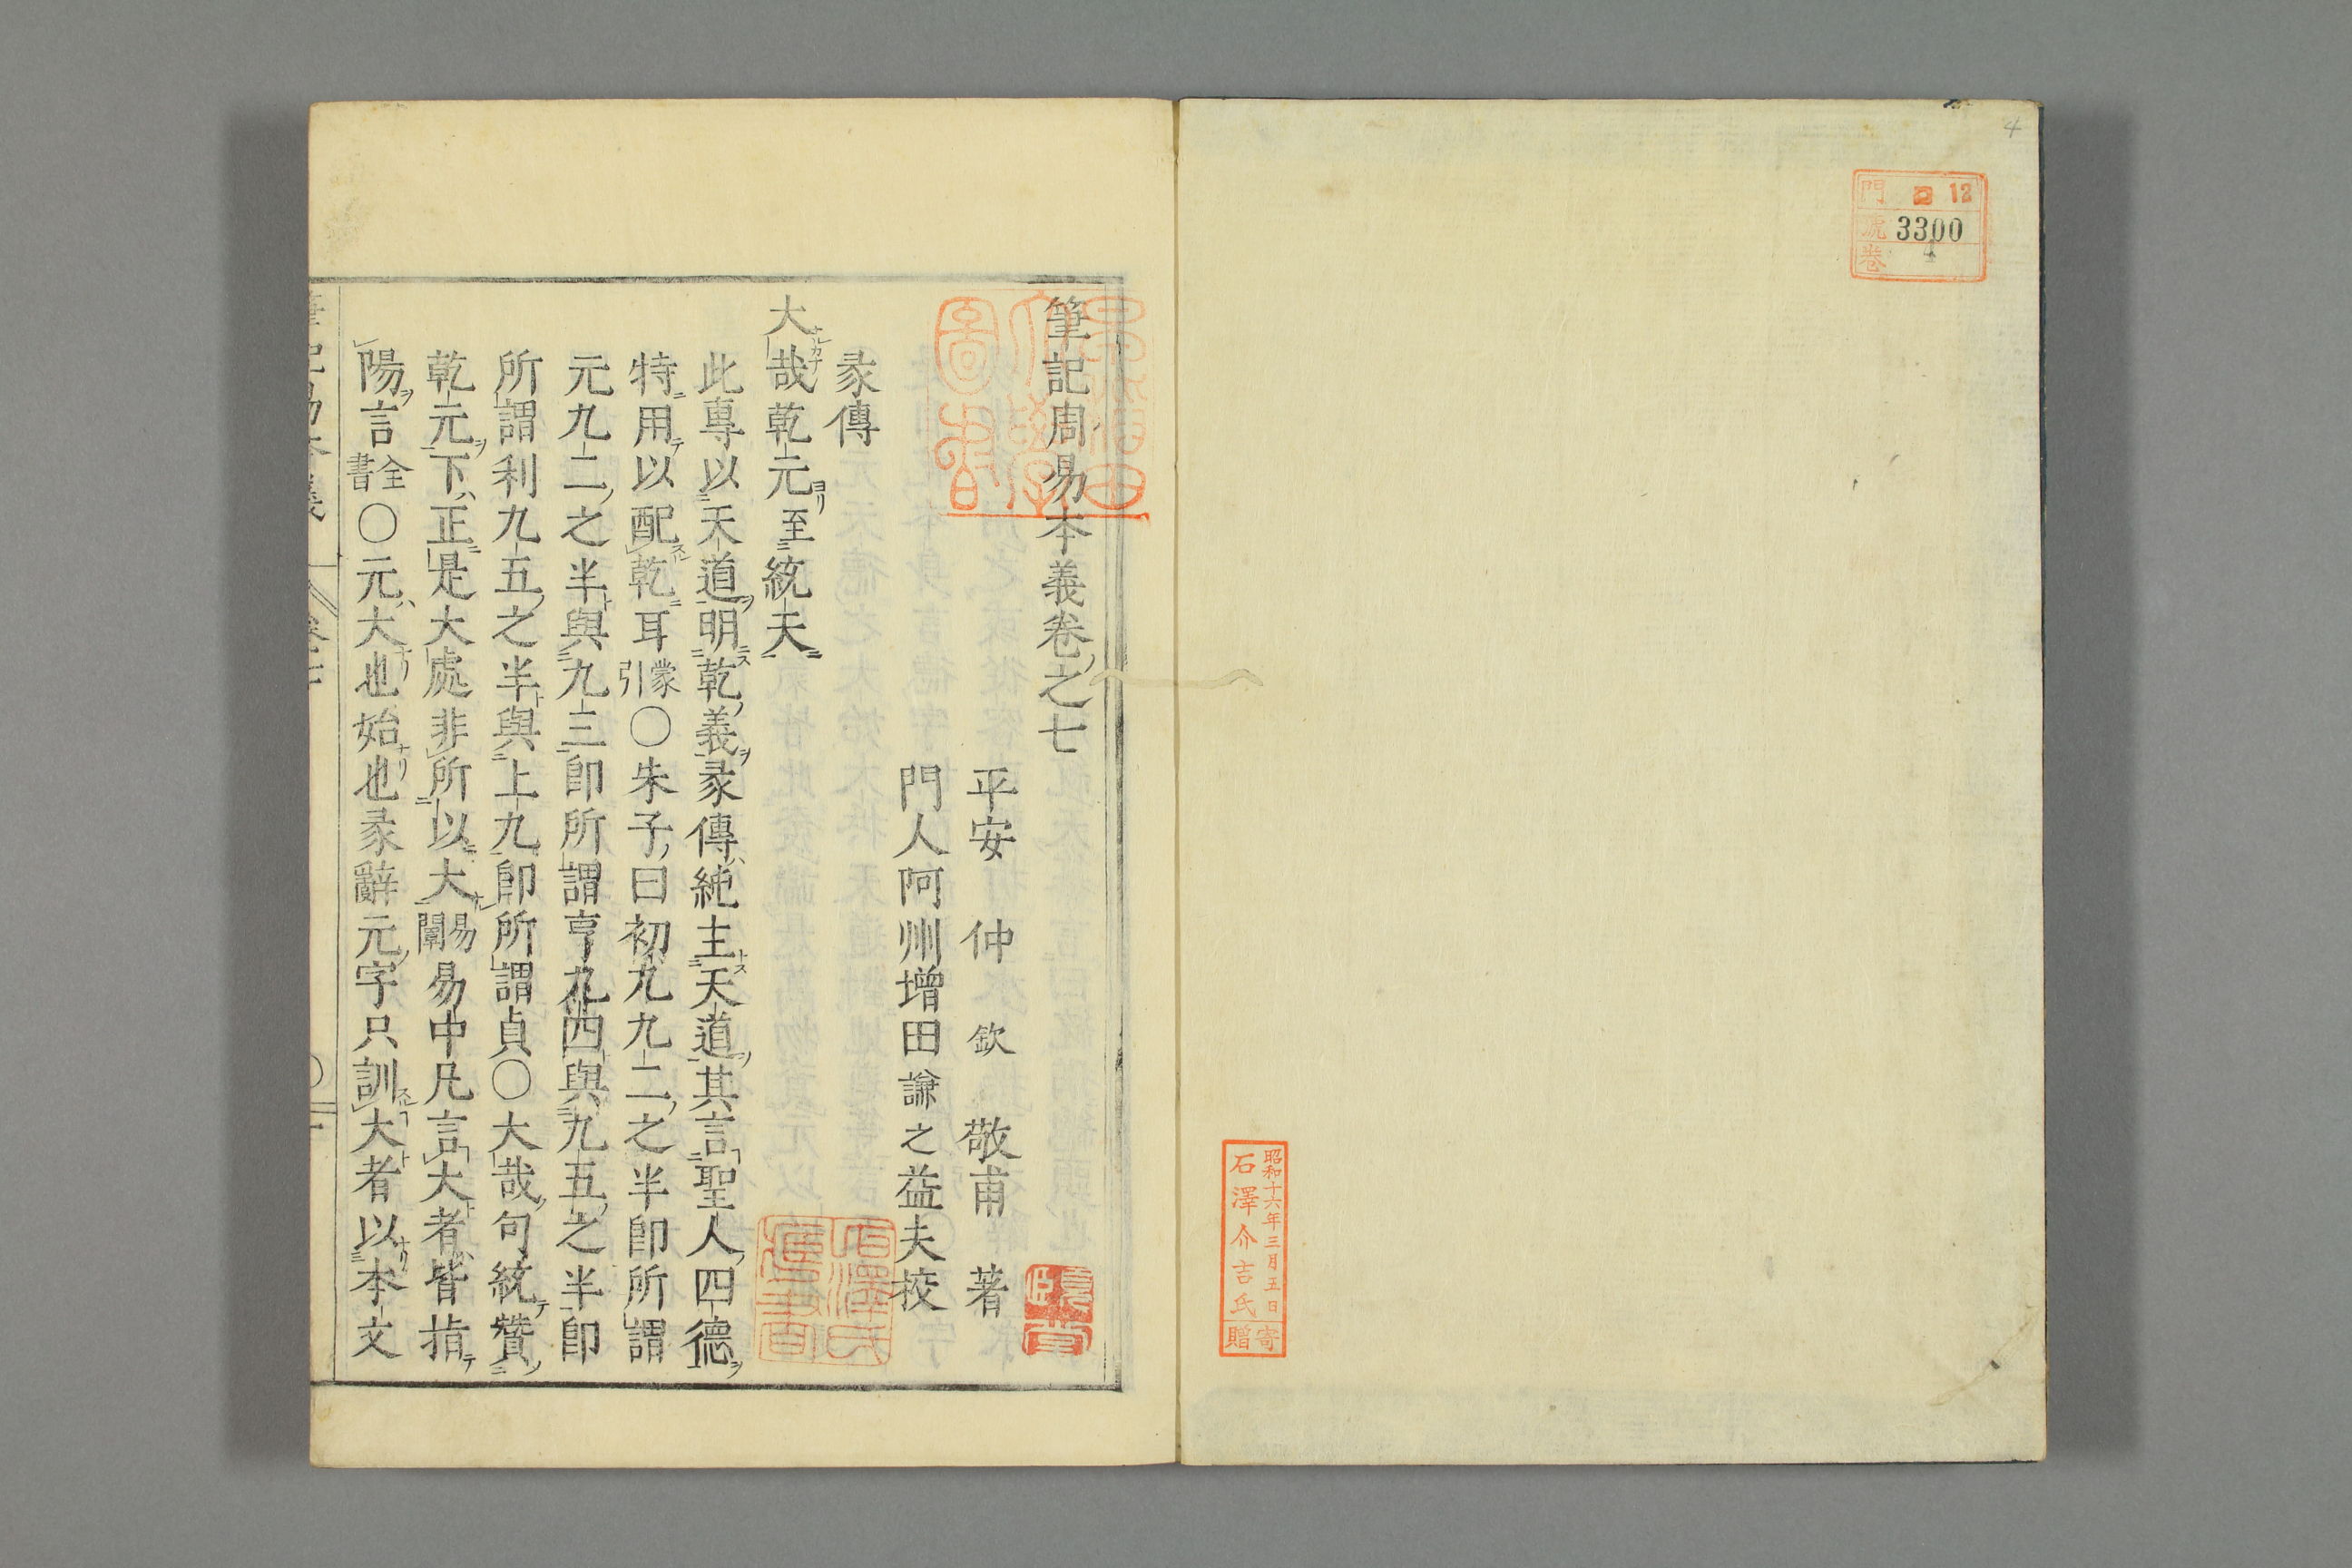 4
門 ロ 12
號 3300
卷 4
昭和十六年三月五日
石澤介吉氏
寄贈
筆記周易本義卷之七
平安 仲 欽 敬甫 著
門人阿州增田謙之益夫挍
彖傳
大哉乾元至統天
此專以天道明乾義彖傳純主天道其言聖人四德
特用以配乾耳蒙引○朱子曰初九九二之半即所謂
元九二之半與九三即所謂亨九四與九五之半即
所謂利九五之半與上九即所謂貞○大哉句統贊
乾元下正是大處非所以大易闡易中凡言大者皆指
陽言全書○元大也始也彖辭元字只訓大者以本文